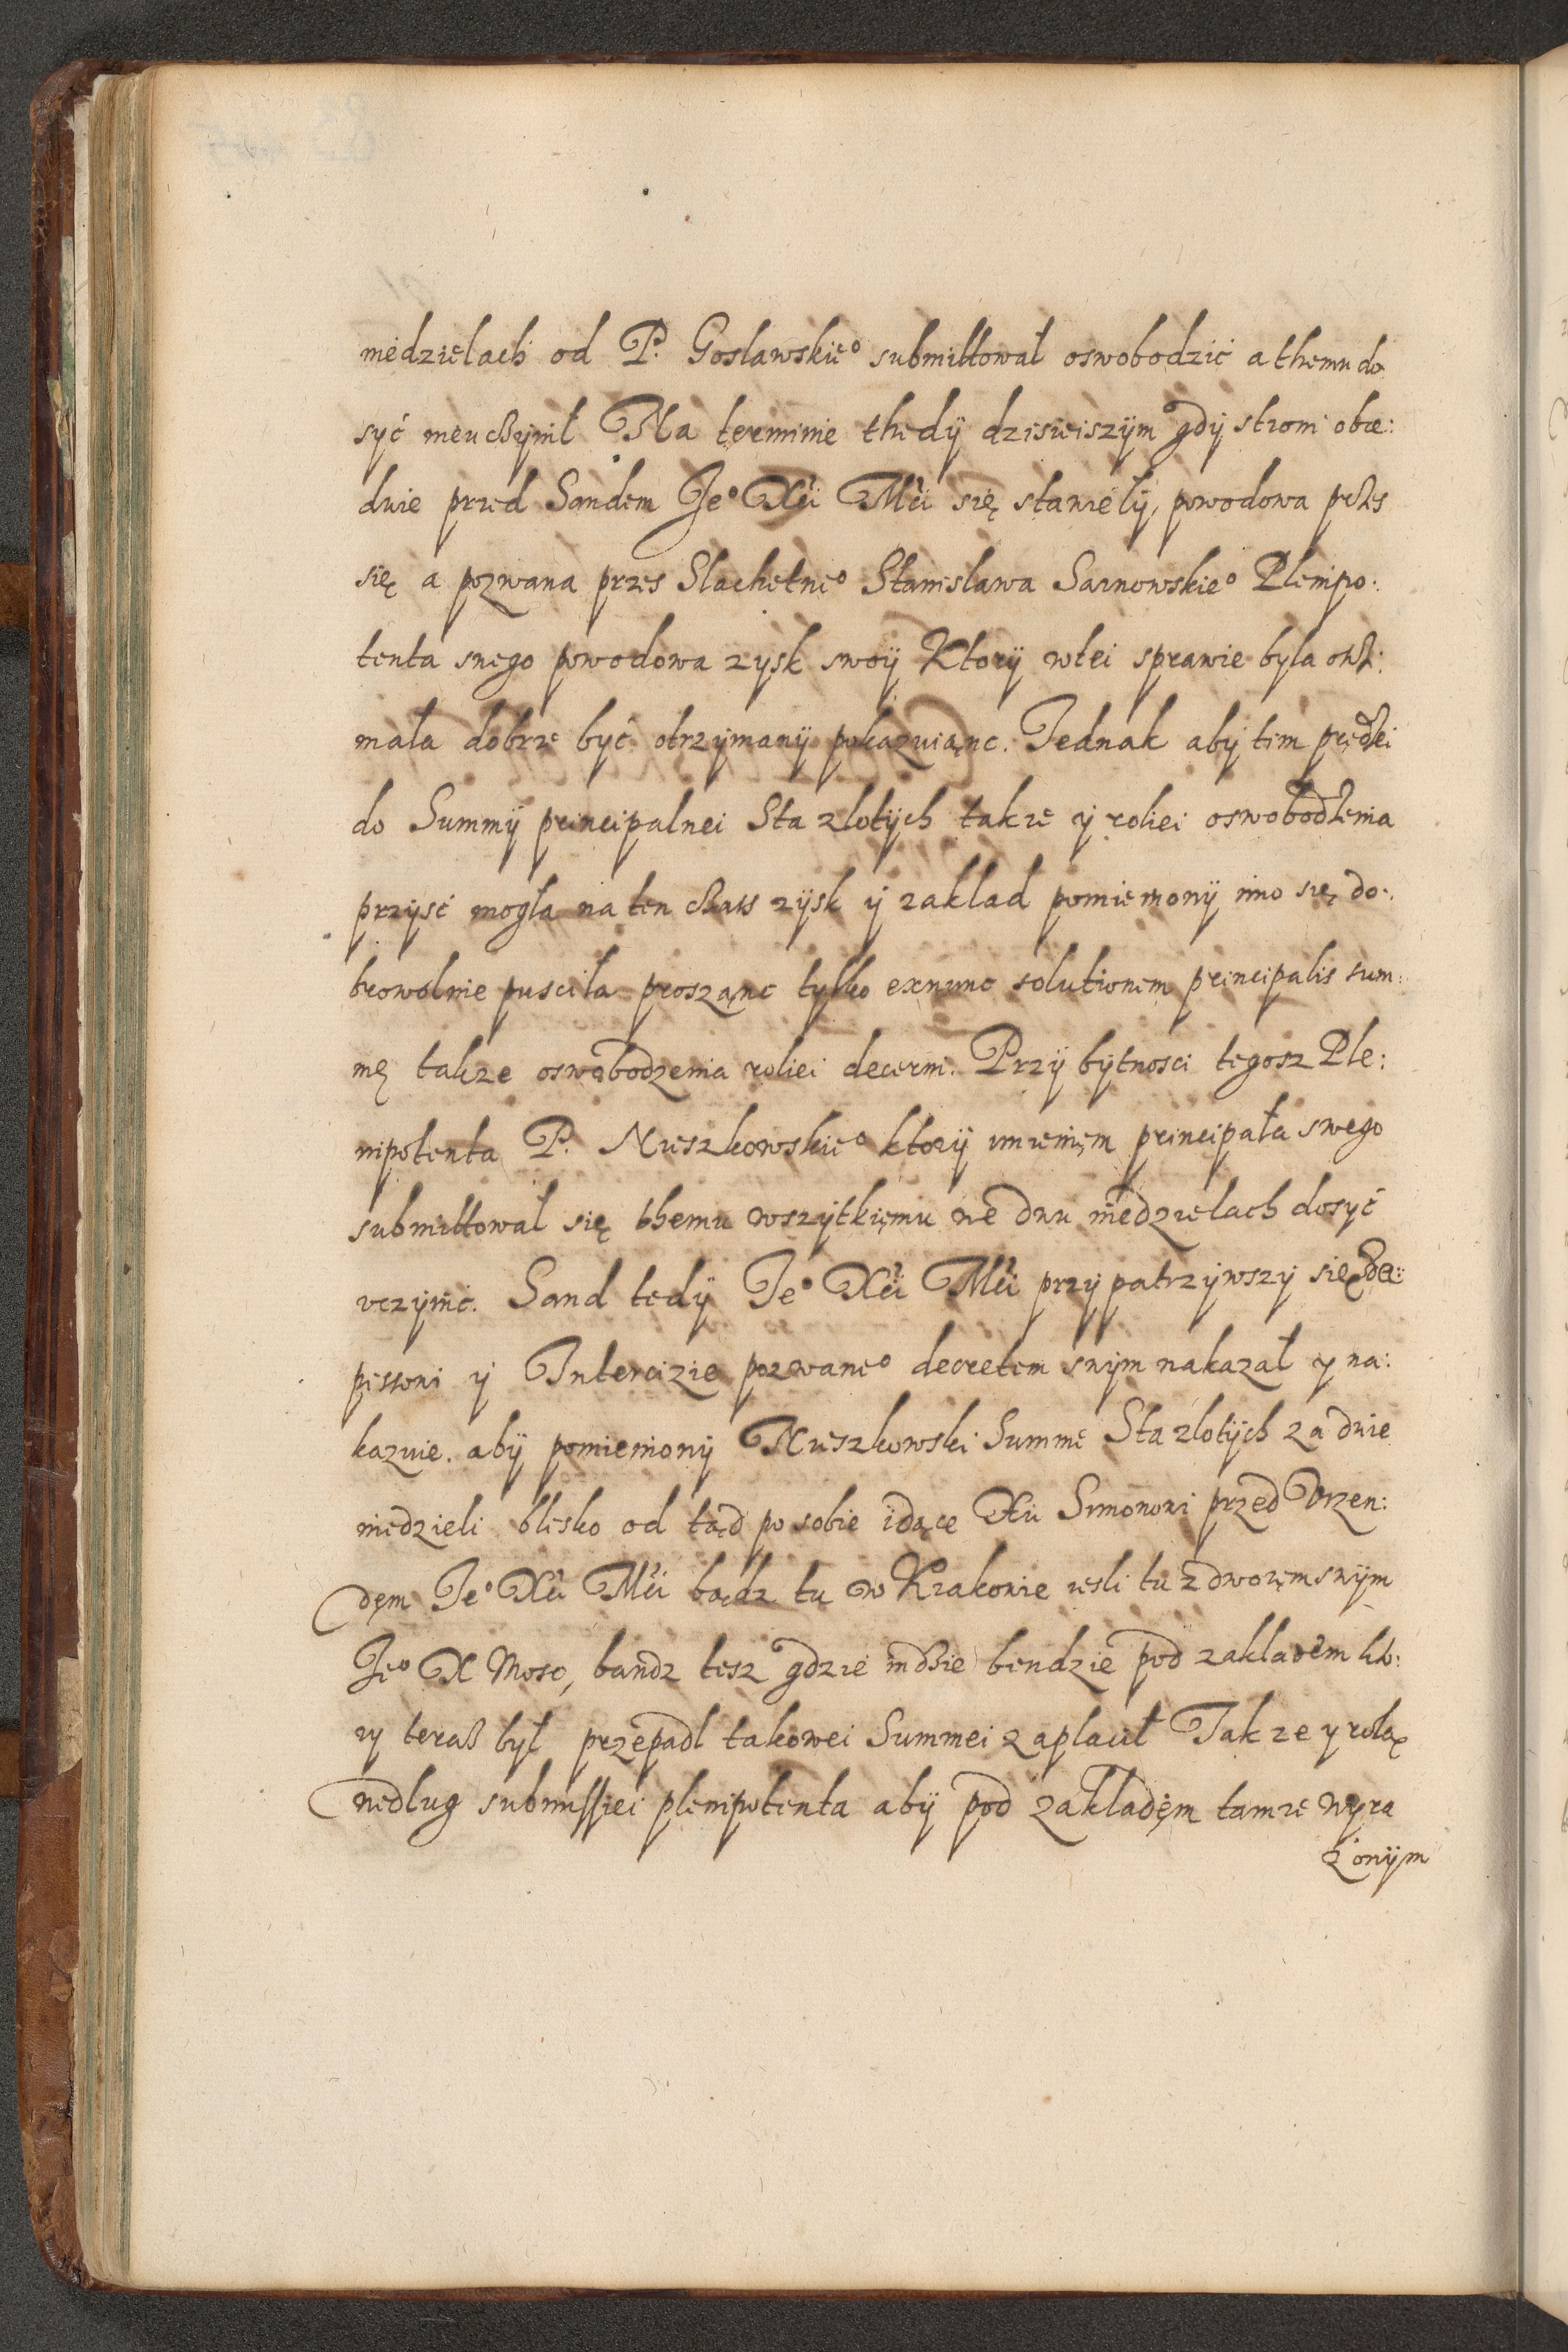 niedzielach od P. Goslawskieº submittował oswobodzić a themu do
syć nieuczÿnił Na terminie thedÿ dzisieiszÿm gdÿ stroni obie:
dwie przed Sandem Jeº Xći Mći się stawiełÿ, powodowa przes
się a pozwana przes Slachetneº Stanislawa Sarnowskieº Plenipo:
tenta swego powodowa zysk swoÿ Ktorÿ wtei sprawie byla otrzÿ:
mała dobrze być otrzÿmanÿ pokazuiąnc. Jednak abÿ tim prędzei
do Summÿ principalnei Sta zlotÿch takze ÿ roliei oswobodzenia
przÿsć mogła na ten czass zÿsk ÿ zaklad pomienionÿ imo się do:
browolnie pusciła prosząnc tylko exnunc solutionem principalis sum:
mę takze oswobodzenia roliei decerni. Przÿ bÿtnosci tegosz Ple:
nipotenta P. Nieszkowskieº ktorÿ imieniem principała swego
submittował się themu wszÿtkięmu we dwu niedzielach dosyć
vczÿnić. Sand tedÿ Jeº Xći Mći przypatrzÿwszÿ się
y Intercizie pozwaneº decretem swÿm nakazał y na:
kazuie. abÿ pomienionÿ Nieszkowski Summe Sta zlotÿch za dwie
niedzieli blisko od tąd po sobie idące Xu Simonowi przed Vrzen:
dęm Jeº Xći Mći bądz tu w Krakowie iesli tu z dworęm swÿm
Jeº X Mosc, bandz tesz gdzie indzie bendzie pod zakladem kto:
ry teraß był przepadł takowei Summei zaplacił Takze y rolą
wedlug submissiei plenipotenta abÿ pod zakladęm tamze wyra
żonÿm